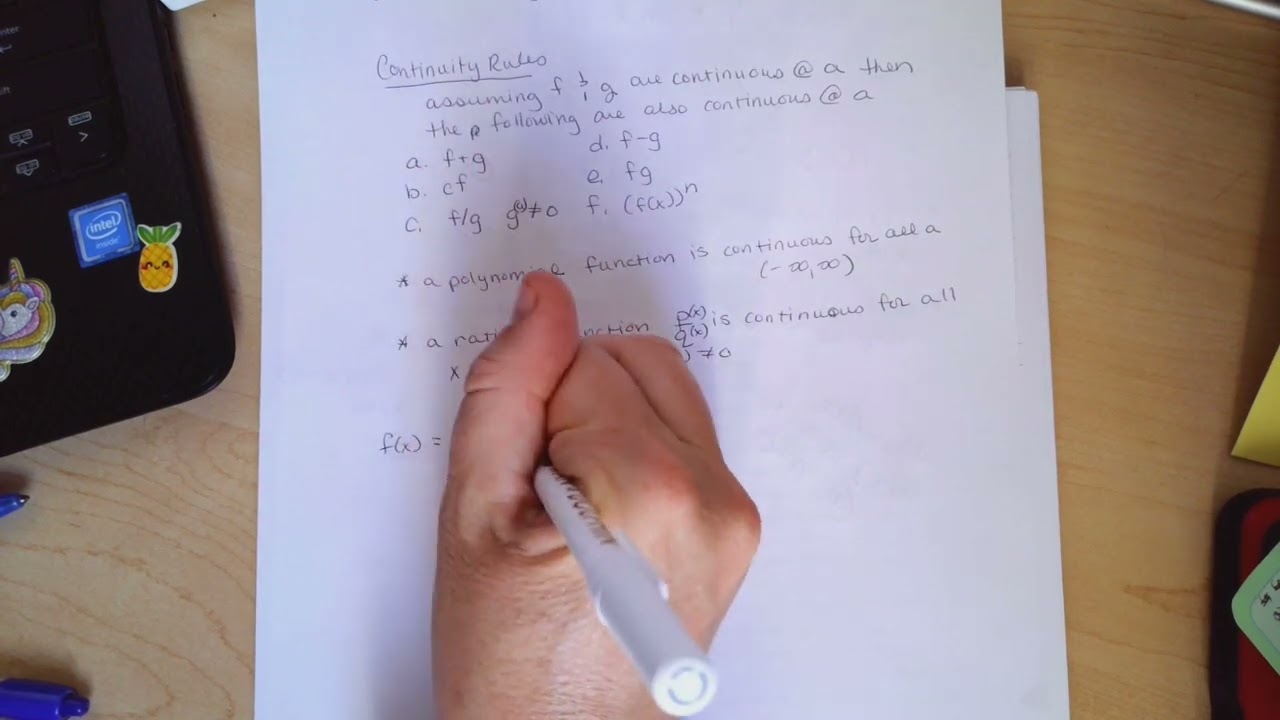 Continuity Rules
assuming f & g are continuous @ a then
the following are also continuous @ a
a. f+g
d. f-g
b. cf
e. fg
c. f/g g(a)≠0
f. (f(x))^n
* a polynomial function is continuous for all a
(-∞,∞)
* a p(x)/q(x) is continuous for all
x ) ≠0
f(x) =
intel
inside